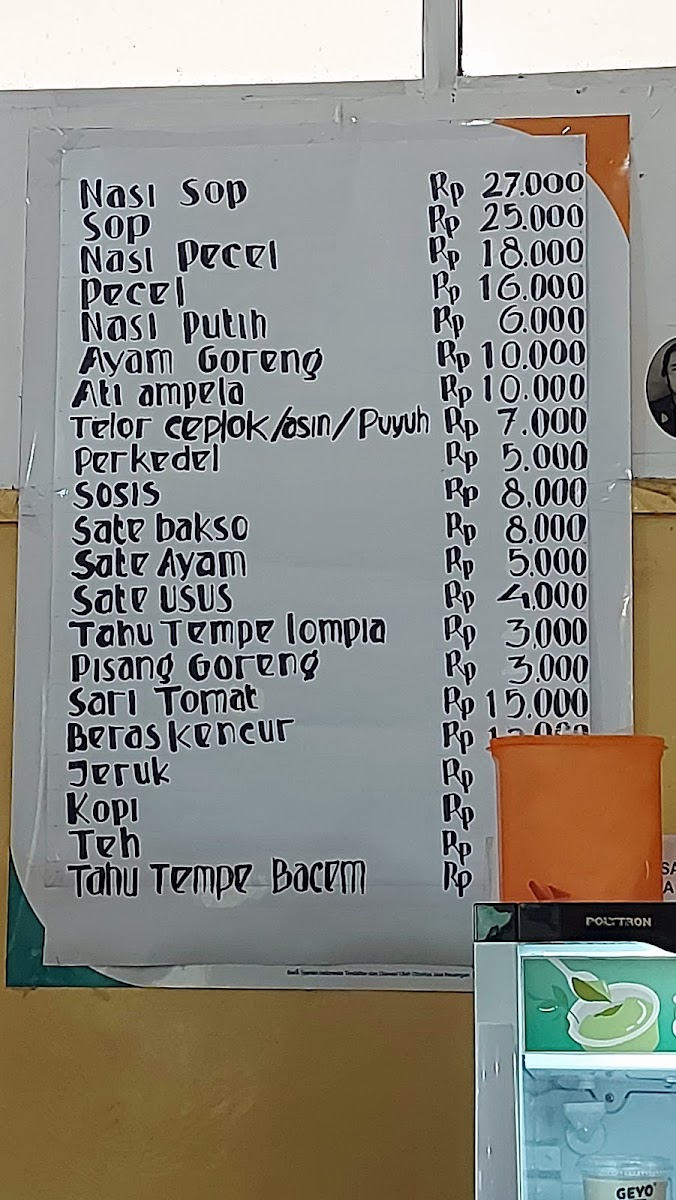 Nasi Sop Rp 27.000
Sop Rp 25.000
Nasi Pecel Rp 18.000
Pecel Rp 16.000
Nasi putih Rp 6.000
Ayam Goreng Rp 10.000
Ati ampela Rp 10.000
Telor ceplok/asin/Puyuh Rp 7.000
Perkedel Rp 5.000
Sosis Rp 8.000
Sate bakso Rp 8.000
Sate Ayam Rp 5.000
Sate usus Rp 4.000
Tahu Tempe lompia Rp 3.000
Pisang Goreng Rp 3.000
Sari Tomat Rp 15.000
Beras kencur Rp
Jeruk Rp
Kopi Rp
Teh Rp
Tahu Tempe Bacem Rp
POLYTRON
GEYO